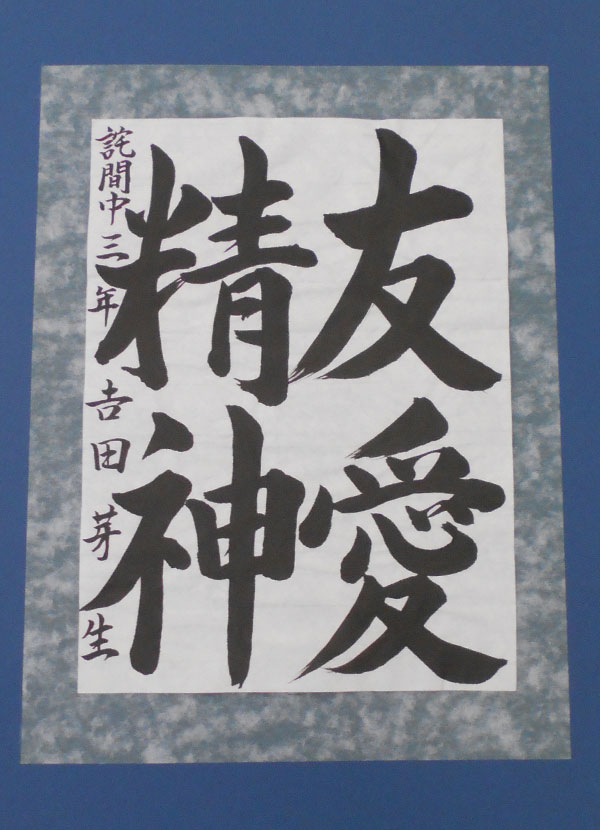 友愛
精神
詫間中三年 𠮷田芽生